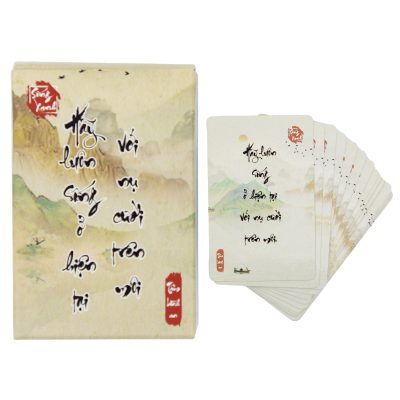 Sống
Xanh
Hãy
luôn
sống
ở
hiện
tại
với
nụ
cười
trên
môi
Tâm
bình
an
Sống
Xanh
Hãy luôn
sống
ở hiện tại
với nụ cười
trên môi